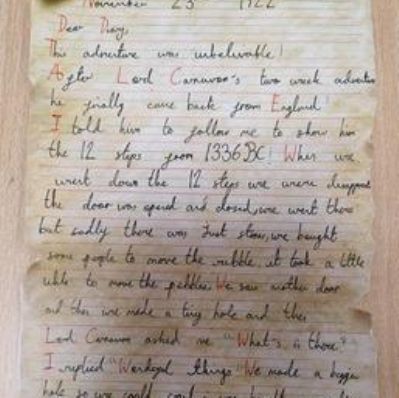 November 23 1922
Dear Diary,
This adventure was unbelivable!
After Lord Carnavon's two week adventure
he finally came back from England!
I told him to follow me to show him
the 12 steps from 1336BC! When we
went down the 12 steps we were
the door was opend and closed, we went there
but sadly there was Just stow, we bought
some people to move the rubble, it took a little
while to move the pebbles. We saw another door
and this we made a tiny hole and then
Lord Carnavon asked me "What's in there?"
I replied "Wonderful things" We made a bigger
hole so we could